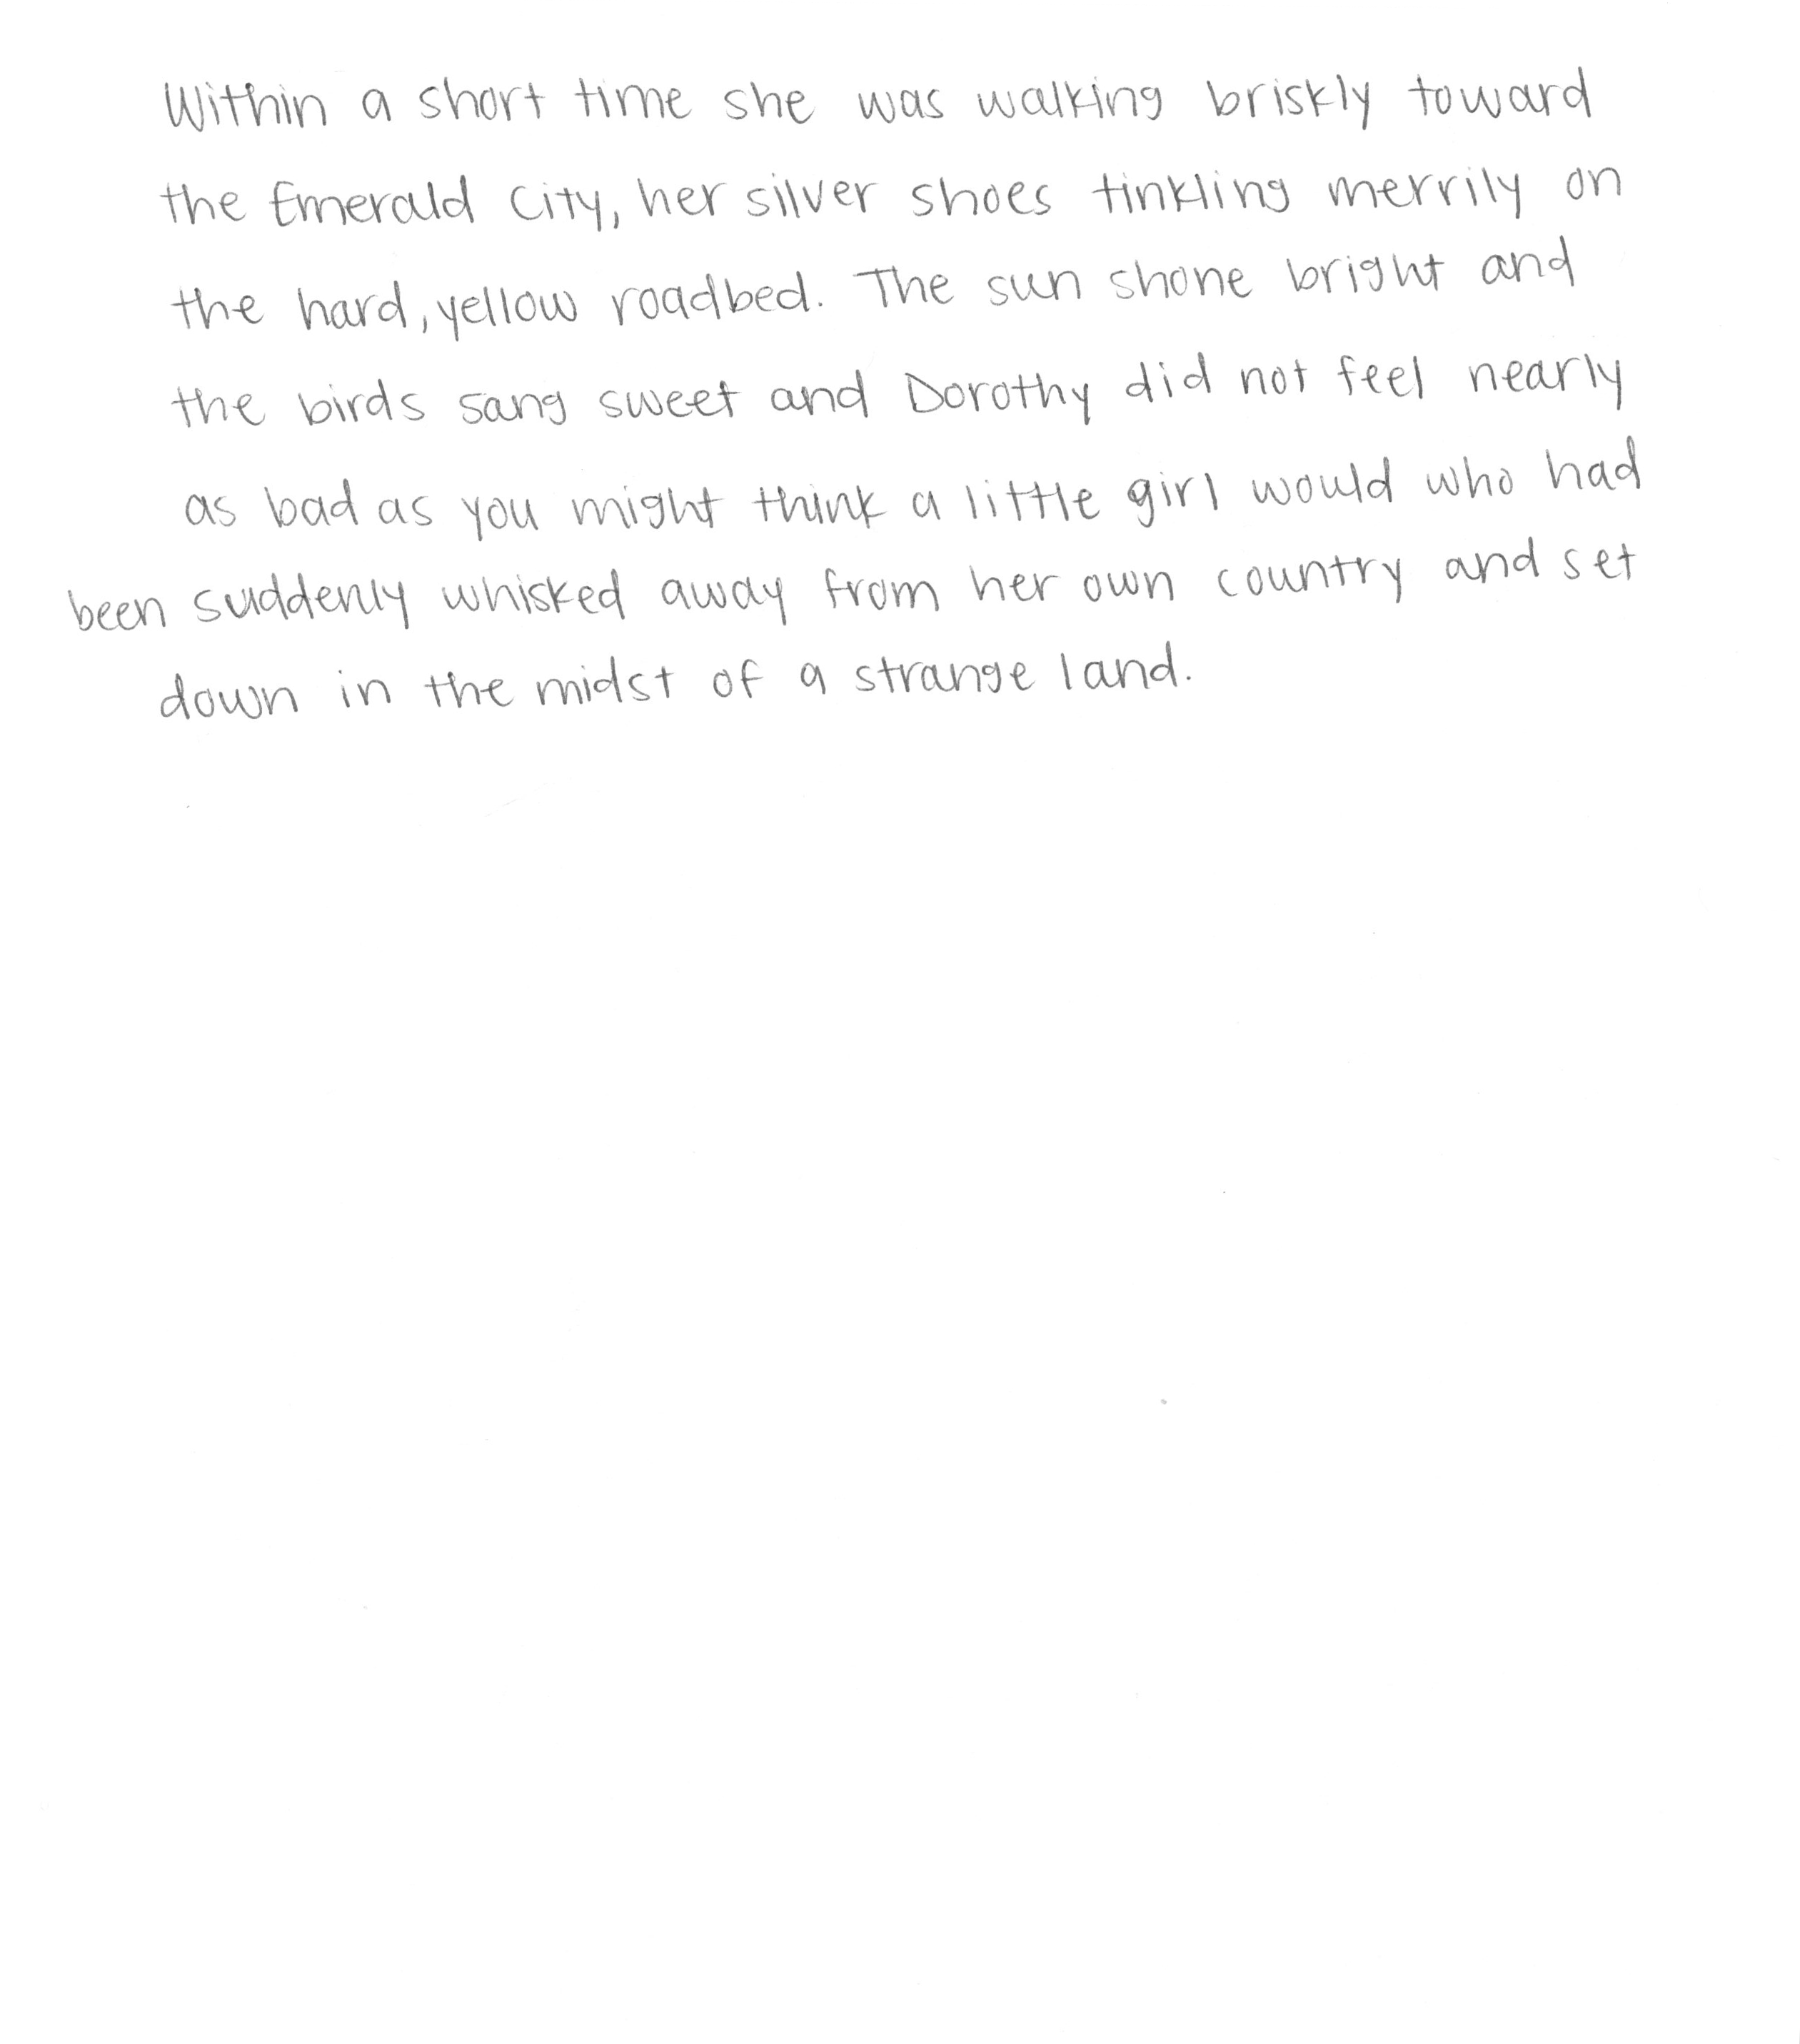 Within a short time she was walking briskly toward
the Emerald City, her silver shoes tinkling merrily on
the hard, yellow roadbed. The sun shone bright and
the birds sang sweet and Dorothy did not feel nearly
as bad as you might think a little girl would who had
been suddenly whisked away from her own country and set
down in the midst of a strange land.